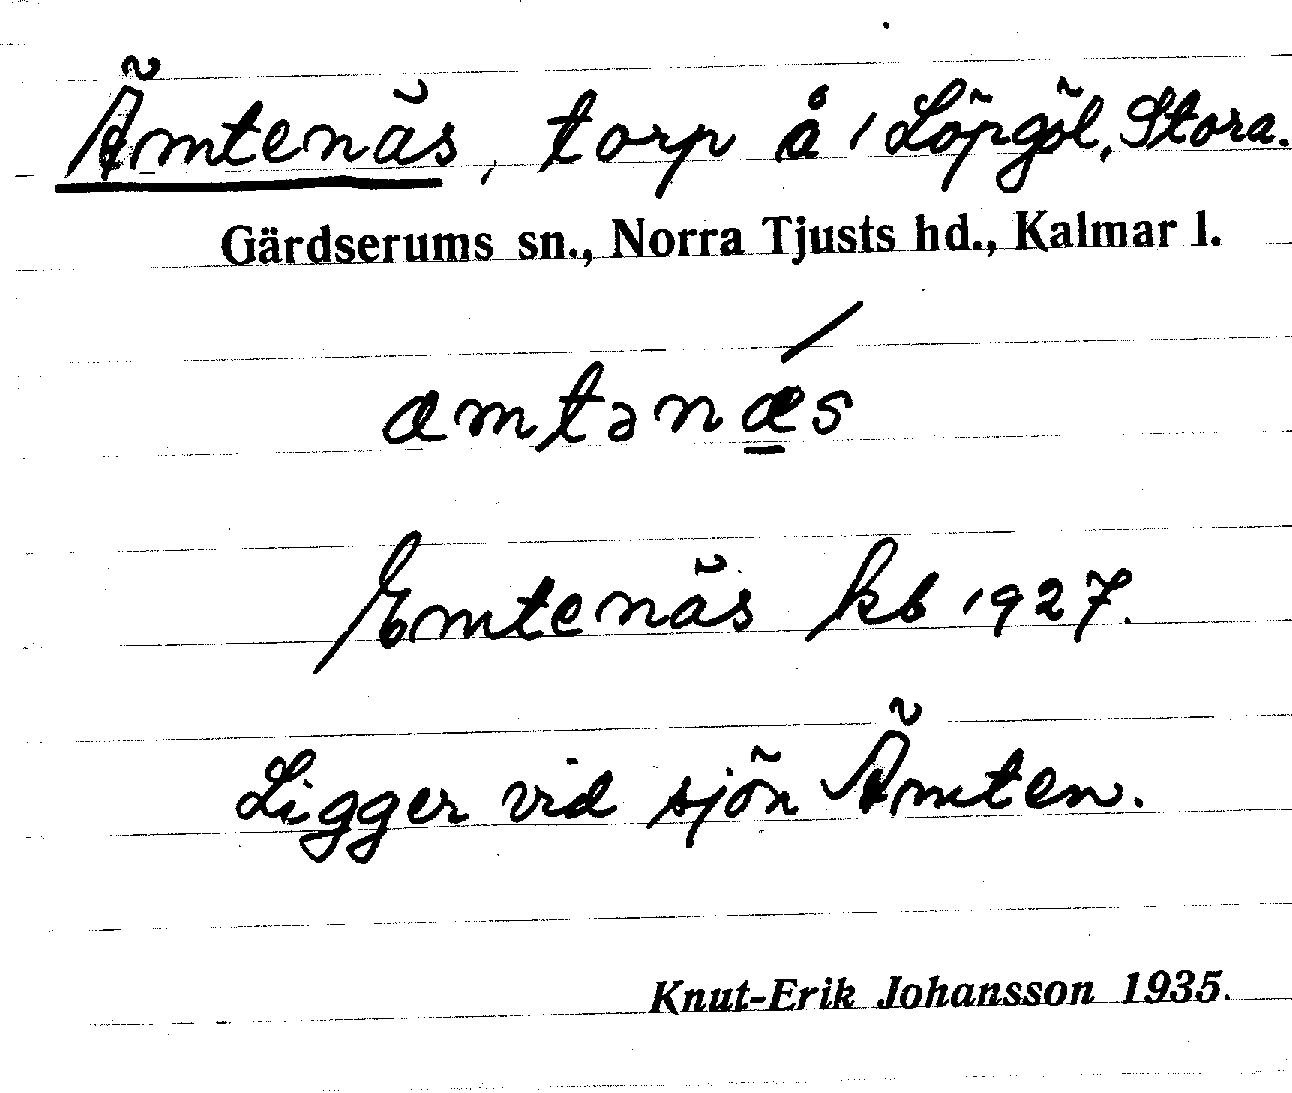 Ämtenäs, torp å 1 Löpgöl, Stora.
Gärdserums sn., Norra Tjusts hd., Kalmar l.
æmtənǽ̱s
Emtenäs kb 1927.
Ligger vid sjön Ämten.
Knut-Erik Johansson 1935.